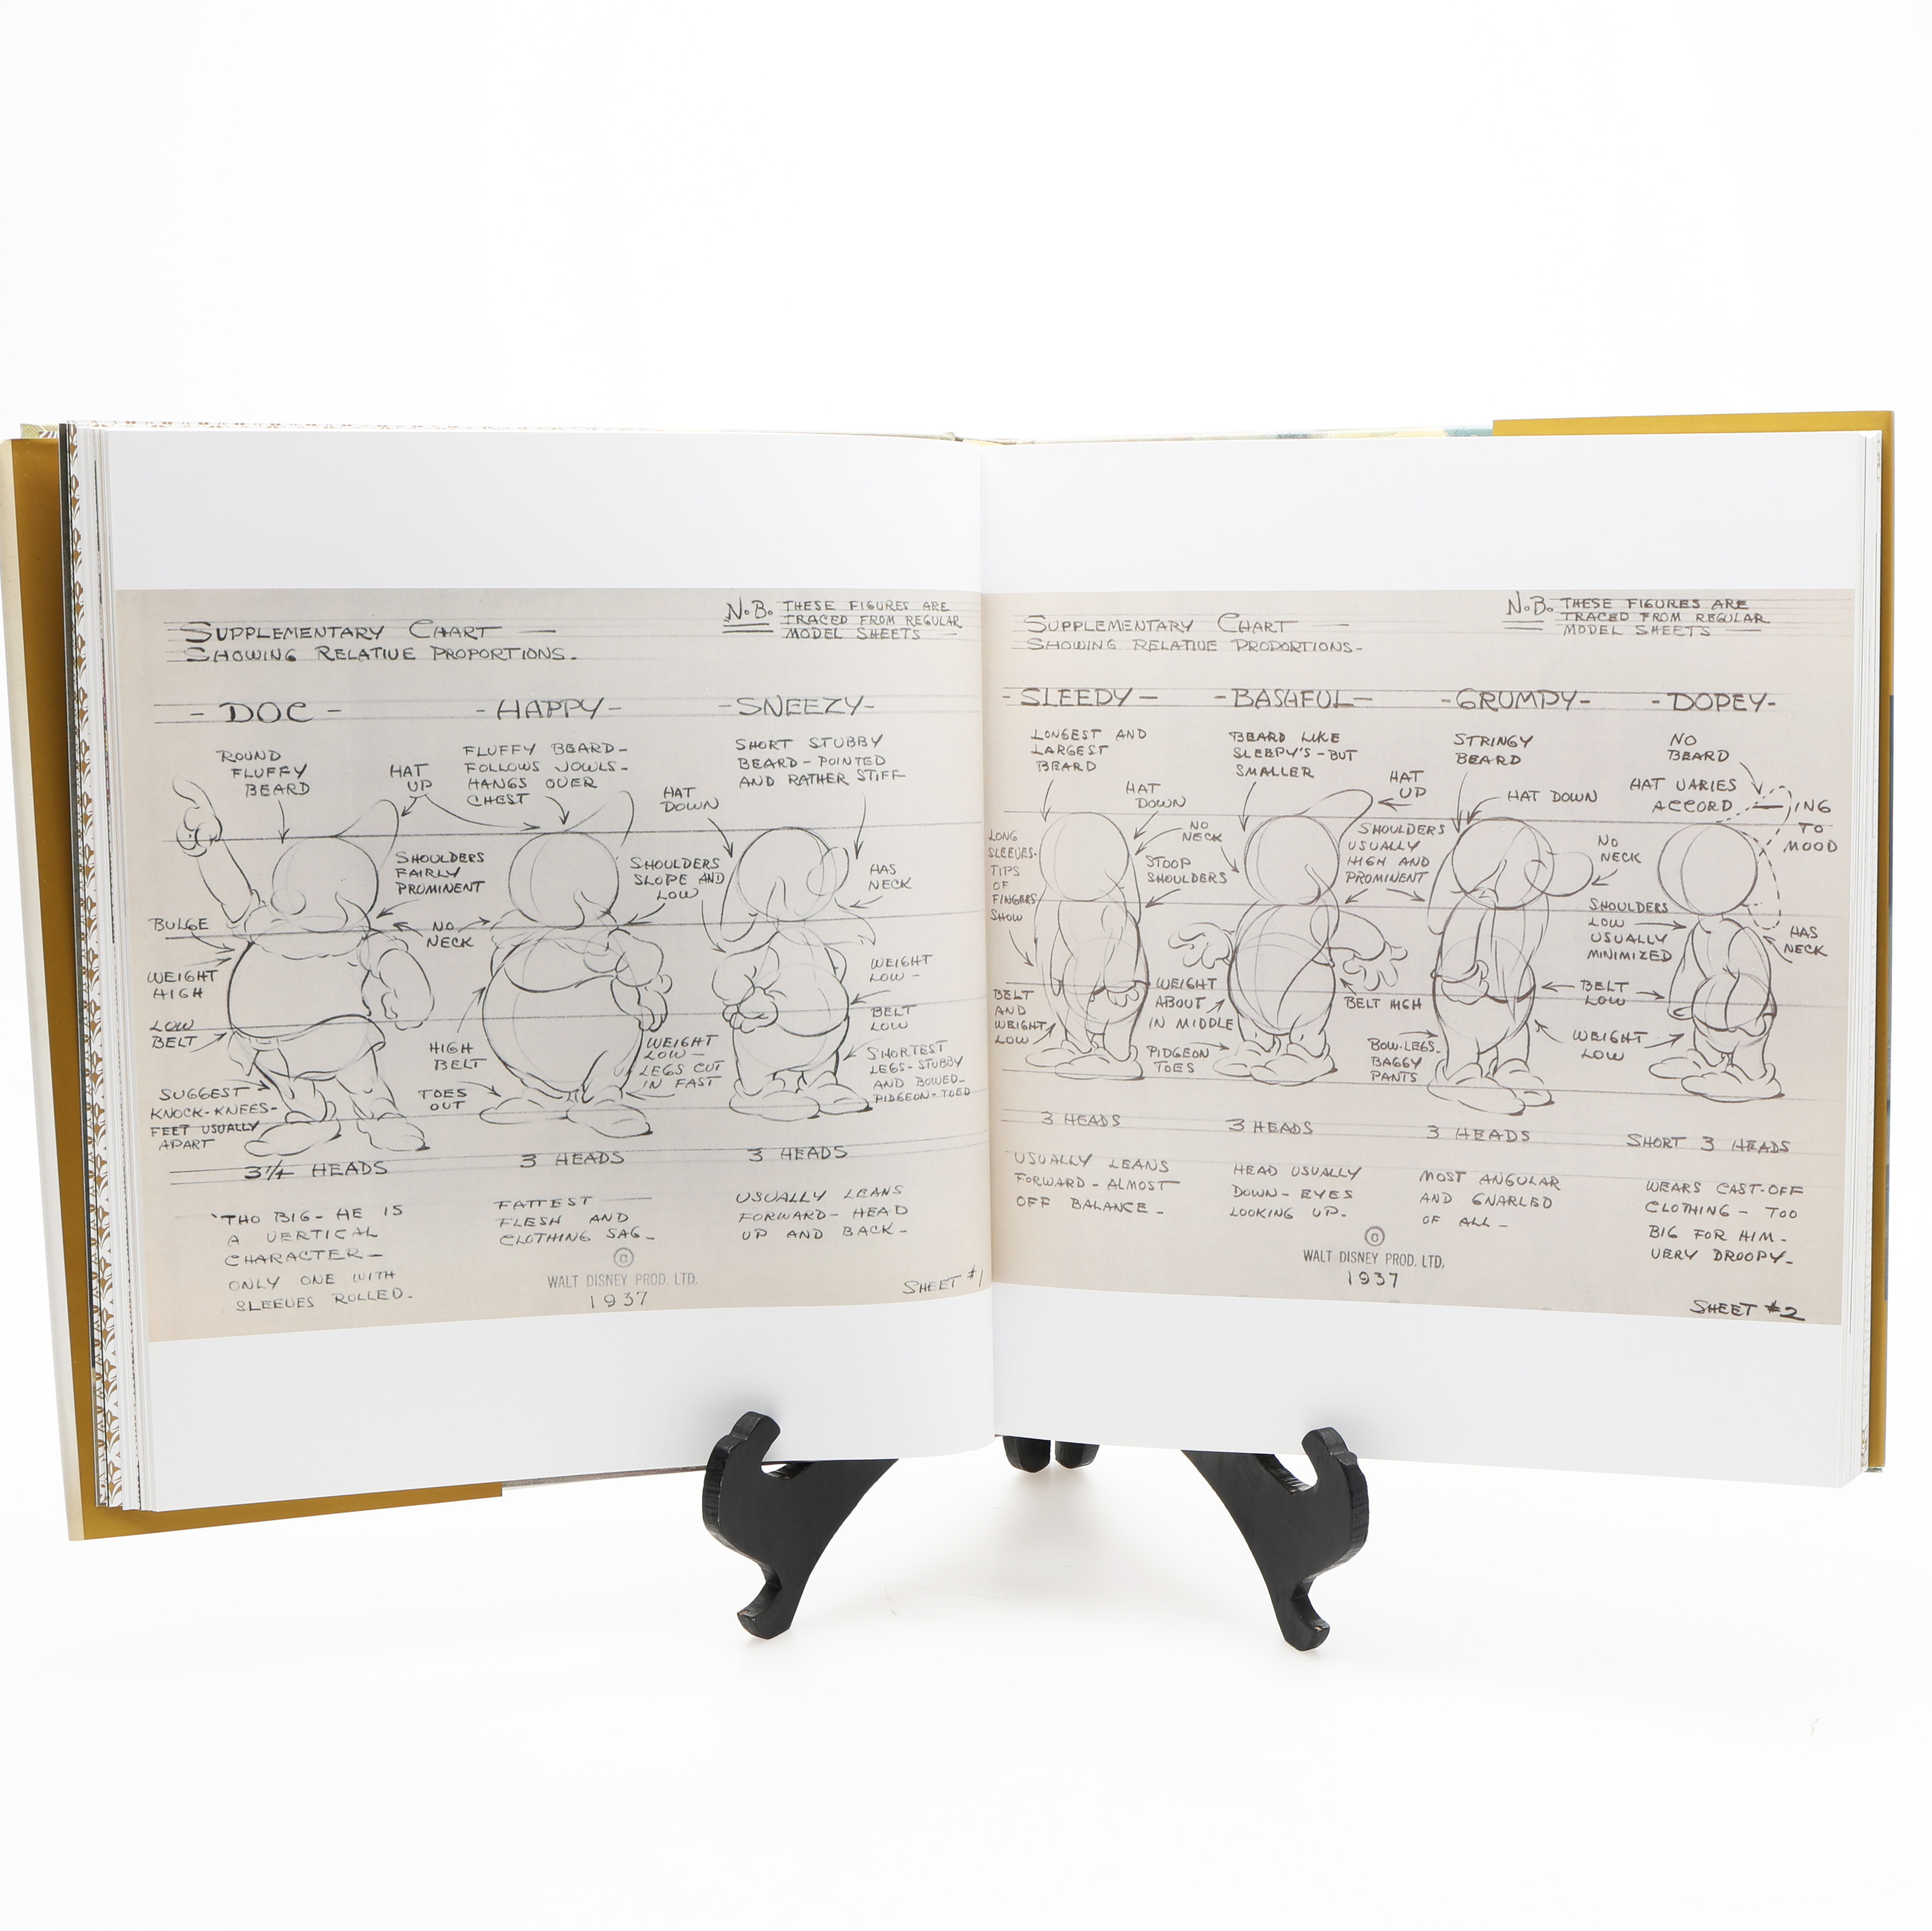 SUPPLEMENTARY CHART —
SHOWING RELATIVE PROPORTIONS.-
N.B. THESE FIGURES ARE
TRACED FROM REGULAR
MODEL SHEETS —
- DOC -
ROUND
FLUFFY
BEARD
HAT
UP
SHOULDERS
FAIRLY
PROMINENT
BULGE
NO
NECK
WEIGHT
HIGH
LOW
BELT
SUGGEST
KNOCK-KNEES-
FEET USUALLY
APART
3 1/4 HEADS
'THO BIG- HE IS
A VERTICAL
CHARACTER—
ONLY ONE WITH
SLEEVES ROLLED.-
- HAPPY -
FLUFFY BEARD-
FOLLOWS JOWLS-
HANGS OVER
CHEST
SHOULDERS
SLOPE AND
LOW
HIGH
BELT
TOES
OUT
WEIGHT
LOW—
LEGS CUT
IN FAST
3 HEADS
FATTEST —
FLESH AND
CLOTHING SAG-
© 
WALT DISNEY PROD. LTD.
1937
- SNEEZY -
SHORT STUBBY
BEARD- POINTED
AND RATHER STIFF
HAT
DOWN
HAS
NECK
WEIGHT
LOW-
BELT
LOW
SHORTEST
LEGS-STUBBY
AND BOWED-
PIDGEON-TOED
3 HEADS
USUALLY LEANS
FORWARD- HEAD
UP AND BACK-
SHEET #1
SUPPLEMENTARY CHART —
SHOWING RELATIVE PROPORTIONS-
N.B. THESE FIGURES ARE
TRACED FROM REGULAR
MODEL SHEETS —
- SLEEPY -
LONGEST AND
LARGEST
BEARD
HAT
DOWN
LONG
SLEEVES-
TIPS
OF
FINGERS
SHOW
NO
NECK
STOOP
SHOULDERS
BELT
AND
WEIGHT
LOW
3 HEADS
USUALLY LEANS
FORWARD- ALMOST
OFF BALANCE-
- BASHFUL -
BEARD LIKE
SLEEPY'S-BUT
SMALLER
HAT
UP
SHOULDERS
USUALLY
HIGH AND
PROMINENT
WEIGHT
ABOUT
IN MIDDLE
BELT HIGH
PIDGEON
TOES
3 HEADS
HEAD USUALLY
DOWN- EYES
LOOKING UP.-
- GRUMPY -
STRINGY
BEARD
HAT DOWN
NO
NECK
BELT
LOW
BOW-LEGS-
BAGGY
PANTS
WEIGHT
LOW
3 HEADS
MOST ANGULAR
AND GNARLED
OF ALL-
©
WALT DISNEY PROD. LTD.
1937
- DOPEY -
NO
BEARD
HAT VARIES
ACCORD — ING
TO
MOOD
SHOULDERS
LOW
USUALLY
MINIMIZED
HAS
NECK
SHORT 3 HEADS
WEARS CAST-OFF
CLOTHING- TOO
BIG FOR HIM-
VERY DROOPY-
SHEET #2